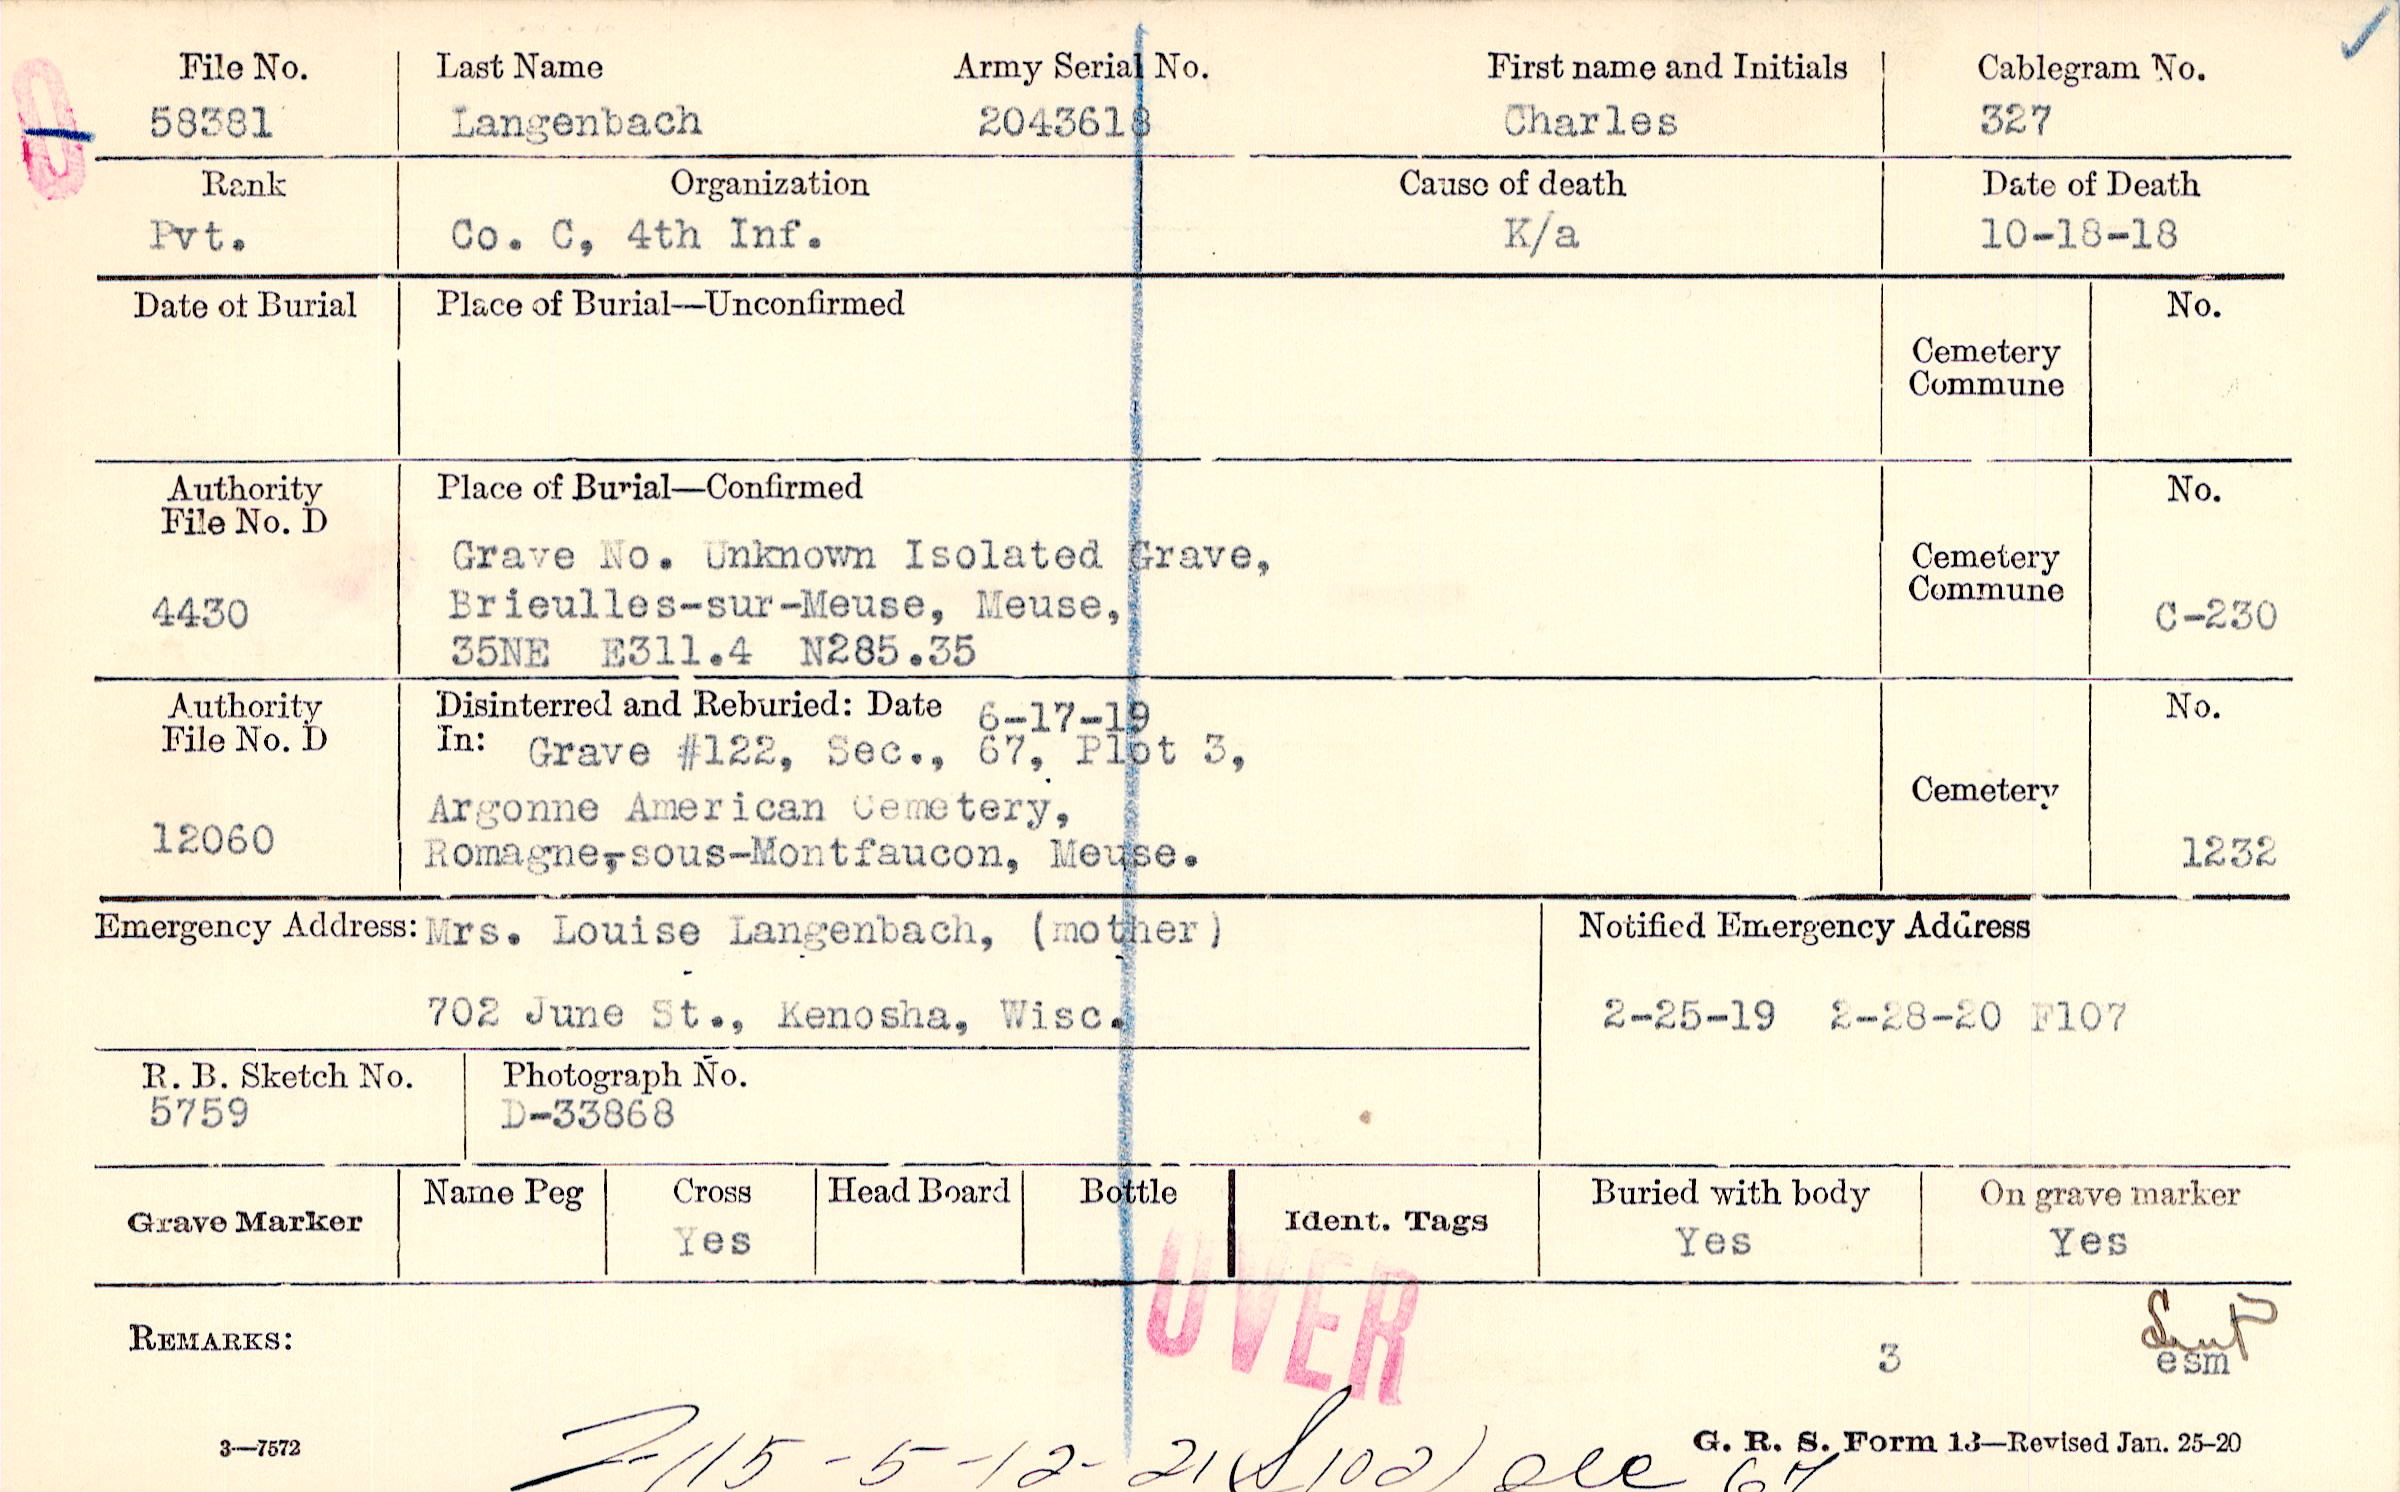 File No. Last Name Army Serial No. First name and Initials Cablegram No.
58381 Langenbach 2043618 Charles 327
Rank Organization Cause of death Date of Death
Pvt. Co. C, 4th Inf. K/a 10-18-18
Date of Burial Place of Burial—Unconfirmed No.
Cemetery
Commune
Authority Place of Burial—Confirmed No.
File No. D
Grave No. Unknown Isolated Grave, Cemetery
4430 Brieulles-sur-Meuse, Meuse, Commune C-230
35NE E311.4 N285.35
Authority Disinterred and Reburied: Date 6-17-19 No.
File No. D In: Grave #122, Sec., 67, Plot 3,
Argonne American Cemetery, Cemetery
12060 Romagne,-sous-Montfaucon, Meuse. 1232
Emergency Address: Mrs. Louise Langenbach, (mother) Notified Emergency Address
702 June St., Kenosha, Wisc. 2-25-19 2-28-20 F107
R. B. Sketch No. Photograph No.
5759 D-33868
Grave Marker Name Peg Cross Head Board Bottle Ident. Tags Buried with body On grave marker
Yes Yes Yes
OVER
REMARKS: 3 esm
3—7572 G. R. S. Form 13—Revised Jan. 25-20
115-5-12-21 (S102)